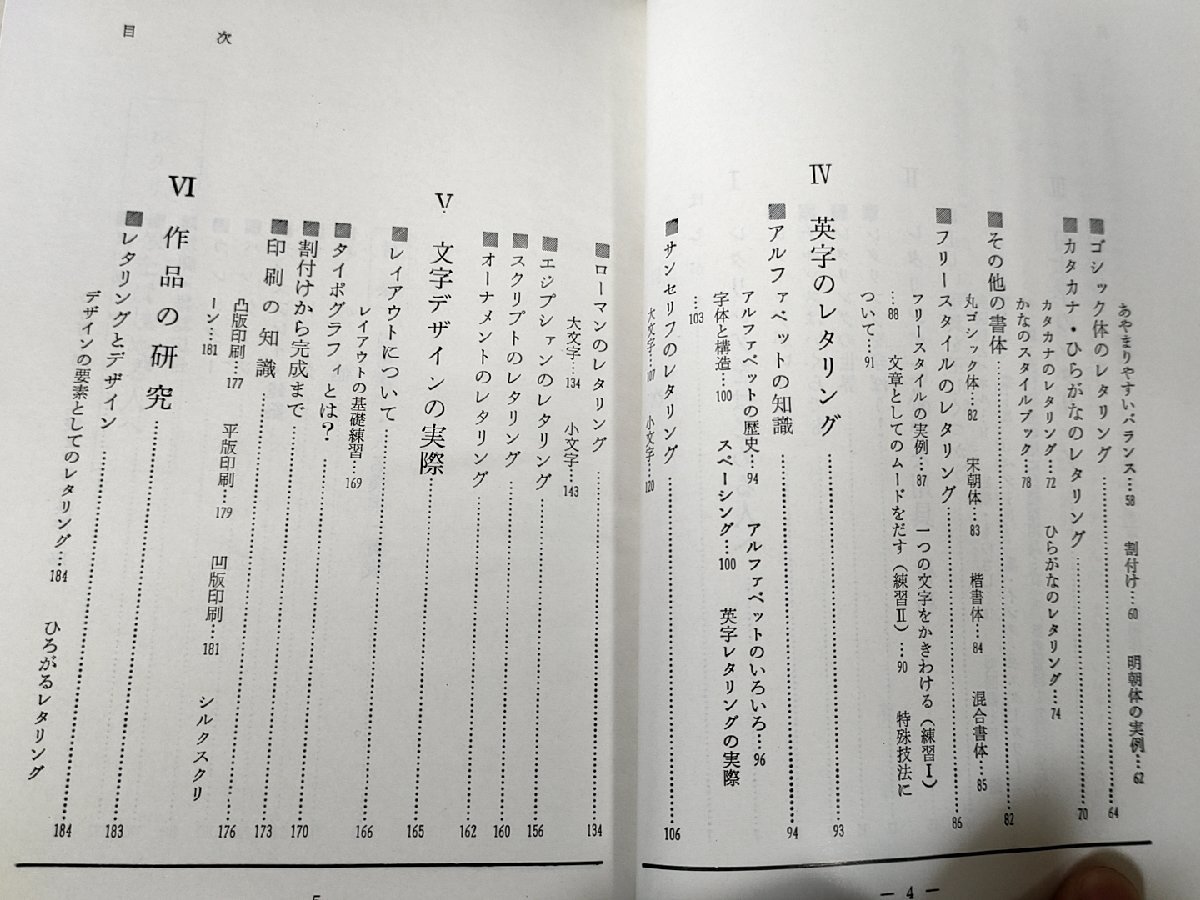 あやまりやすいバランス…58　割付け…60　明朝体の実例…62
■ゴシック体のレタリング……64
■カタカナ・ひらがなのレタリング……70
カタカナのレタリング…72　ひらがなのレタリング…74
かなのスタイルブック…78
■その他の書体……82
丸ゴシック体…82　宋朝体…83　楷書体…84　混合書体…85
■フリースタイルのレタリング……86
フリースタイルの実例…87　一つの文字をかきわける（練習Ⅰ）
…88　文章としてのムードをだす（練習Ⅱ）…90　特殊技法に
ついて…91
Ⅳ　英字のレタリング……93
■アルファベットの知識……94
アルファベットの歴史…94　アルファベットのいろいろ…96
字体と構造…100　スペーシング…100　英字レタリングの実際
…103
■サンセリフのレタリング……106
大文字…107　小文字…120
— 4 —
目　次
■ローマンのレタリング……134
大文字…134　小文字…143
■エジプシァンのレタリング……156
■スクリプトのレタリング……160
■オーナメントのレタリング……162
Ⅴ　文字デザインの実際……165
■レイアウトについて……166
レイアウトの基礎練習…169
■タイポグラフィとは？……170
■割付けから完成まで……173
■印刷の知識……176
凸版印刷…177　平版印刷…179　凹版印刷…181　シルクスクリ
ーン…181
Ⅵ　作品の研究……183
■レタリングとデザイン……184
デザインの要素としてのレタリング…184　ひろがるレタリング